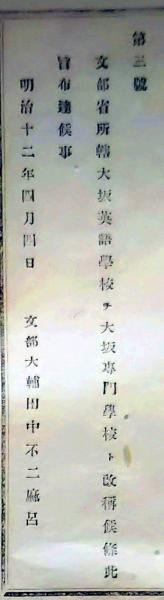 第三號
文部省所轄大坂英語學校ヲ大坂專門學校ト改稱候條此
旨布達候事
明治十二年四月四日　文部大輔田中不二麻呂